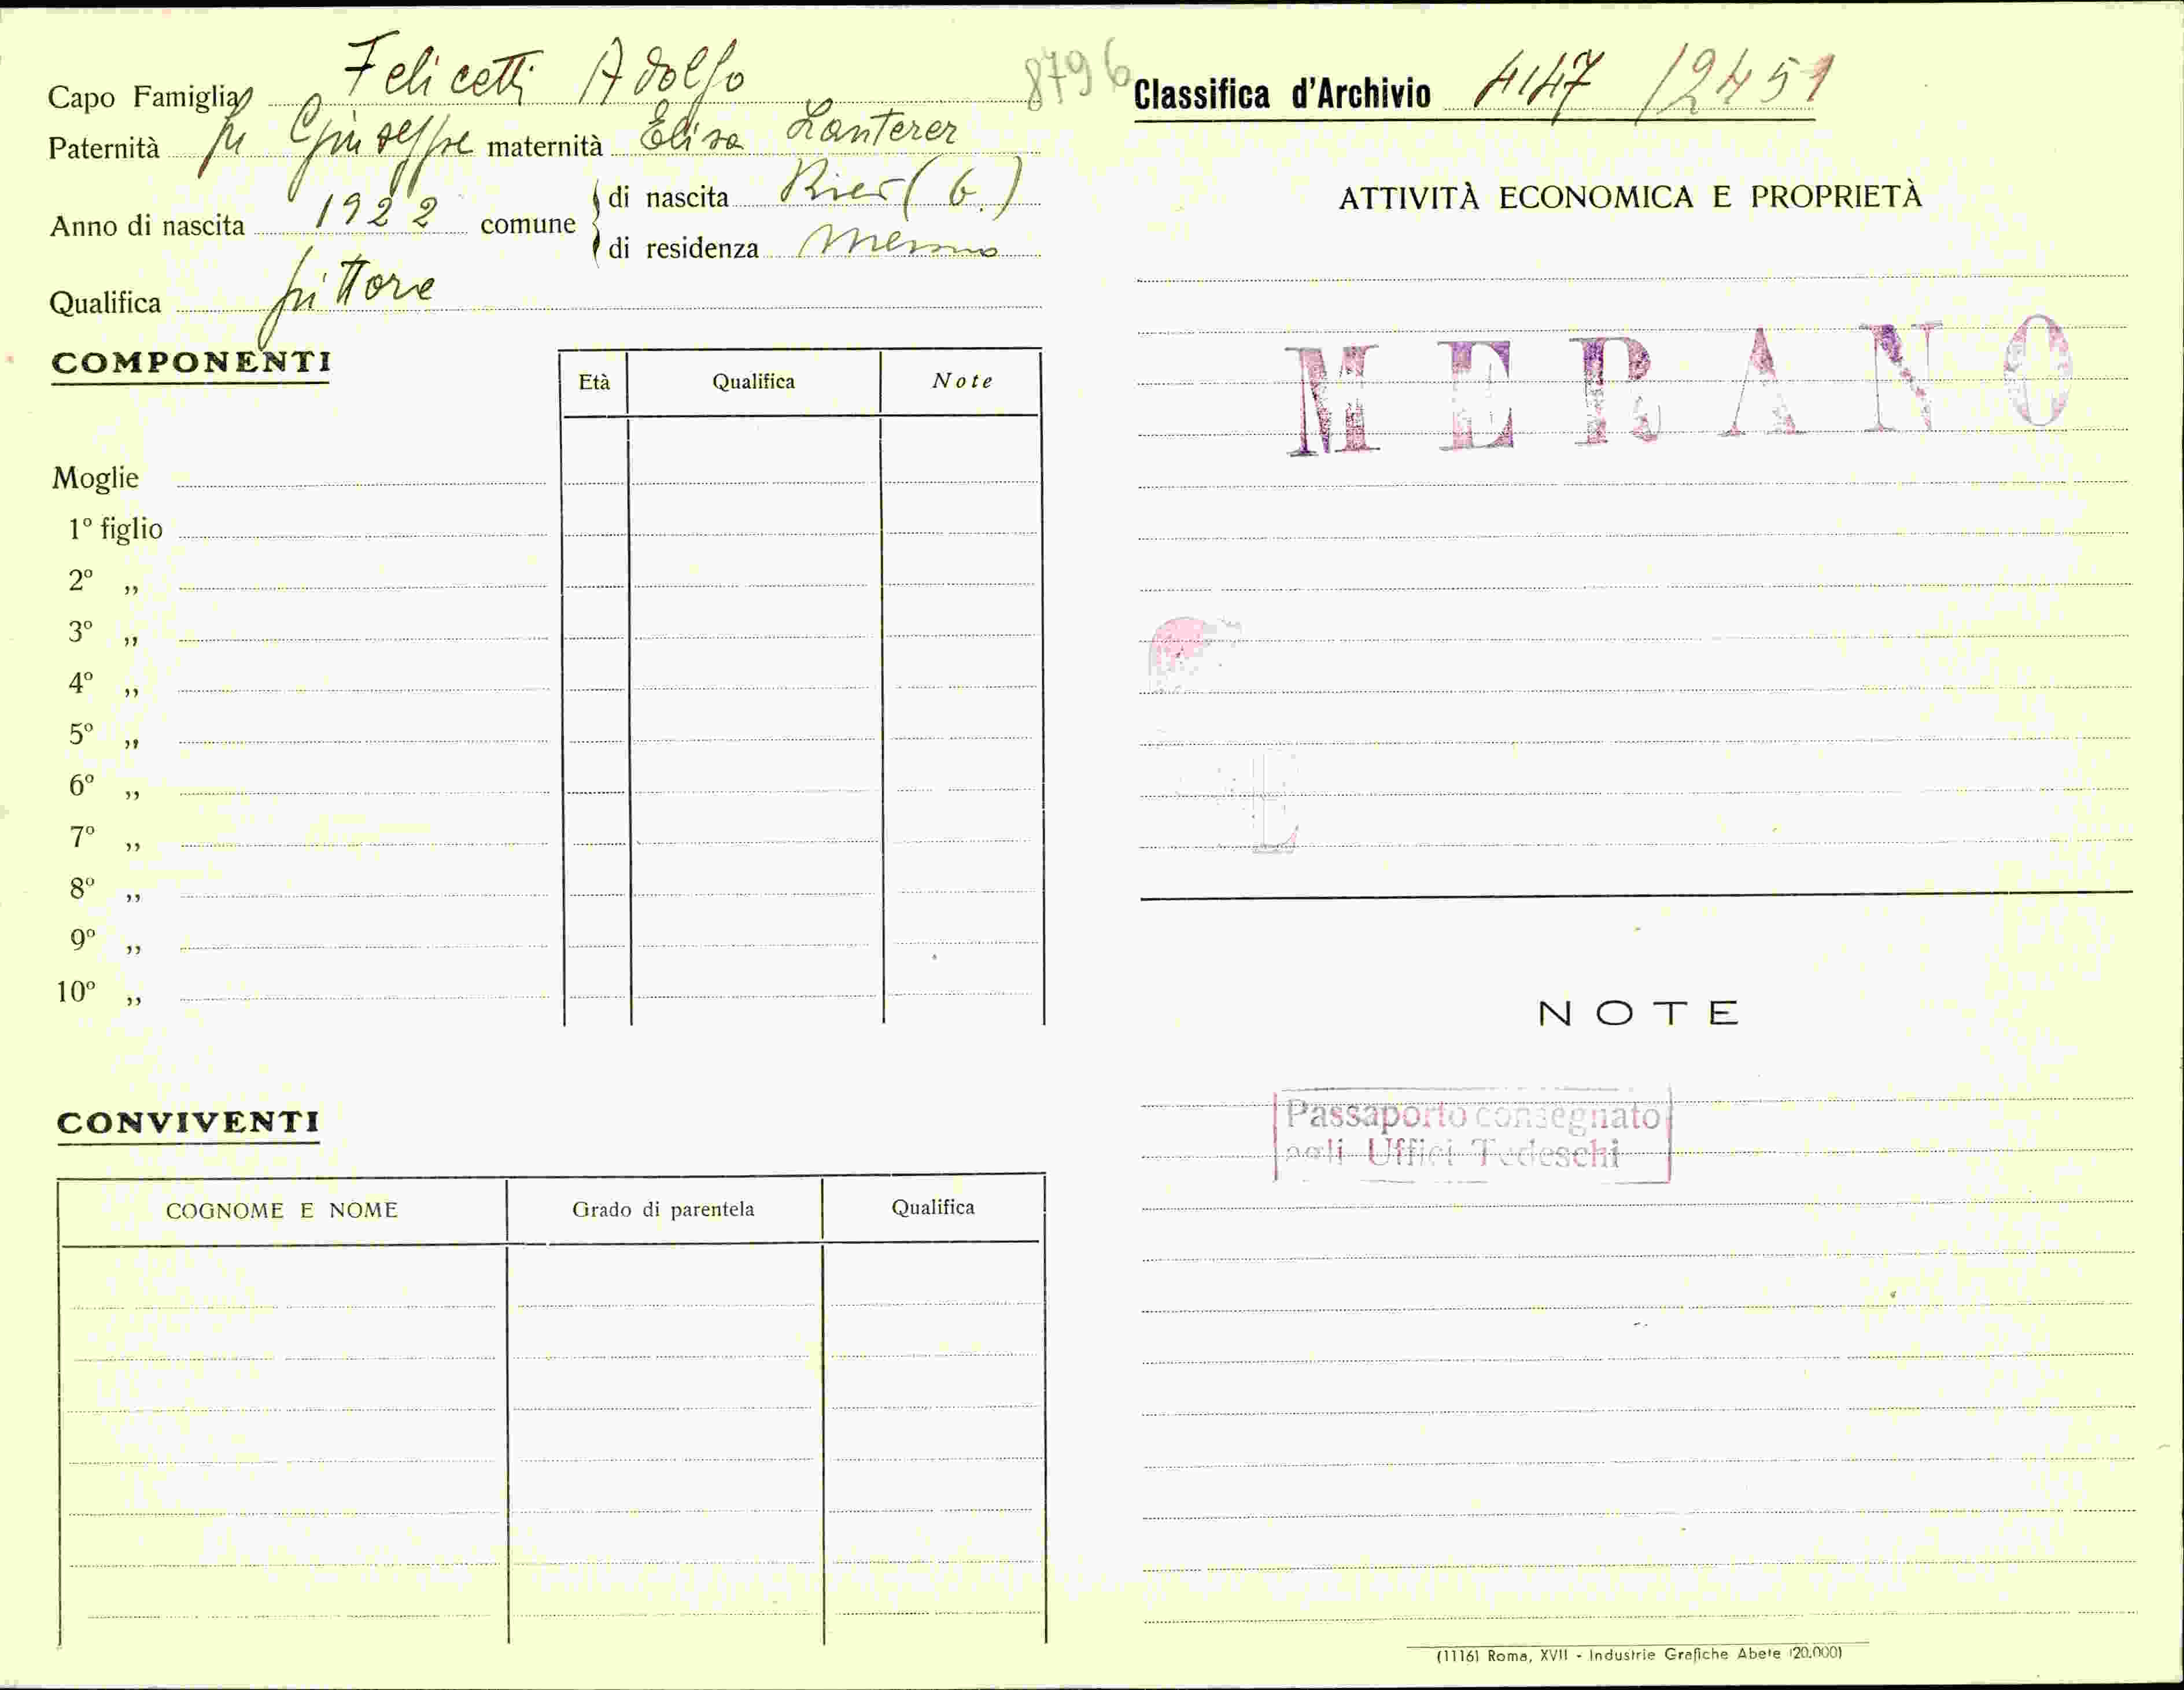 Capo Famiglia Felicetti Adolfo 8796
Paternità fu Giuseppe maternità Elisa Lanterer
Anno di nascita 1922 comune
di nascita Kier (G.)
di residenza Merano
Qualifica pittore
COMPONENTI
Età Qualifica Note
Moglie
1º figlio
2º ,,
3º ,,
4º ,,
5º ,,
6º ,,
7º ,,
8º ,,
9º ,,
10º ,,
CONVIVENTI
COGNOME E NOME Grado di parentela Qualifica
Classifica d'Archivio 4147 12451
ATTIVITÀ ECONOMICA E PROPRIETÀ
MERANO
NOTE
Passaporto consegnato
agli Uffici Tedeschi
(1116) Roma, XVII - Industrie Grafiche Abete (20.000)